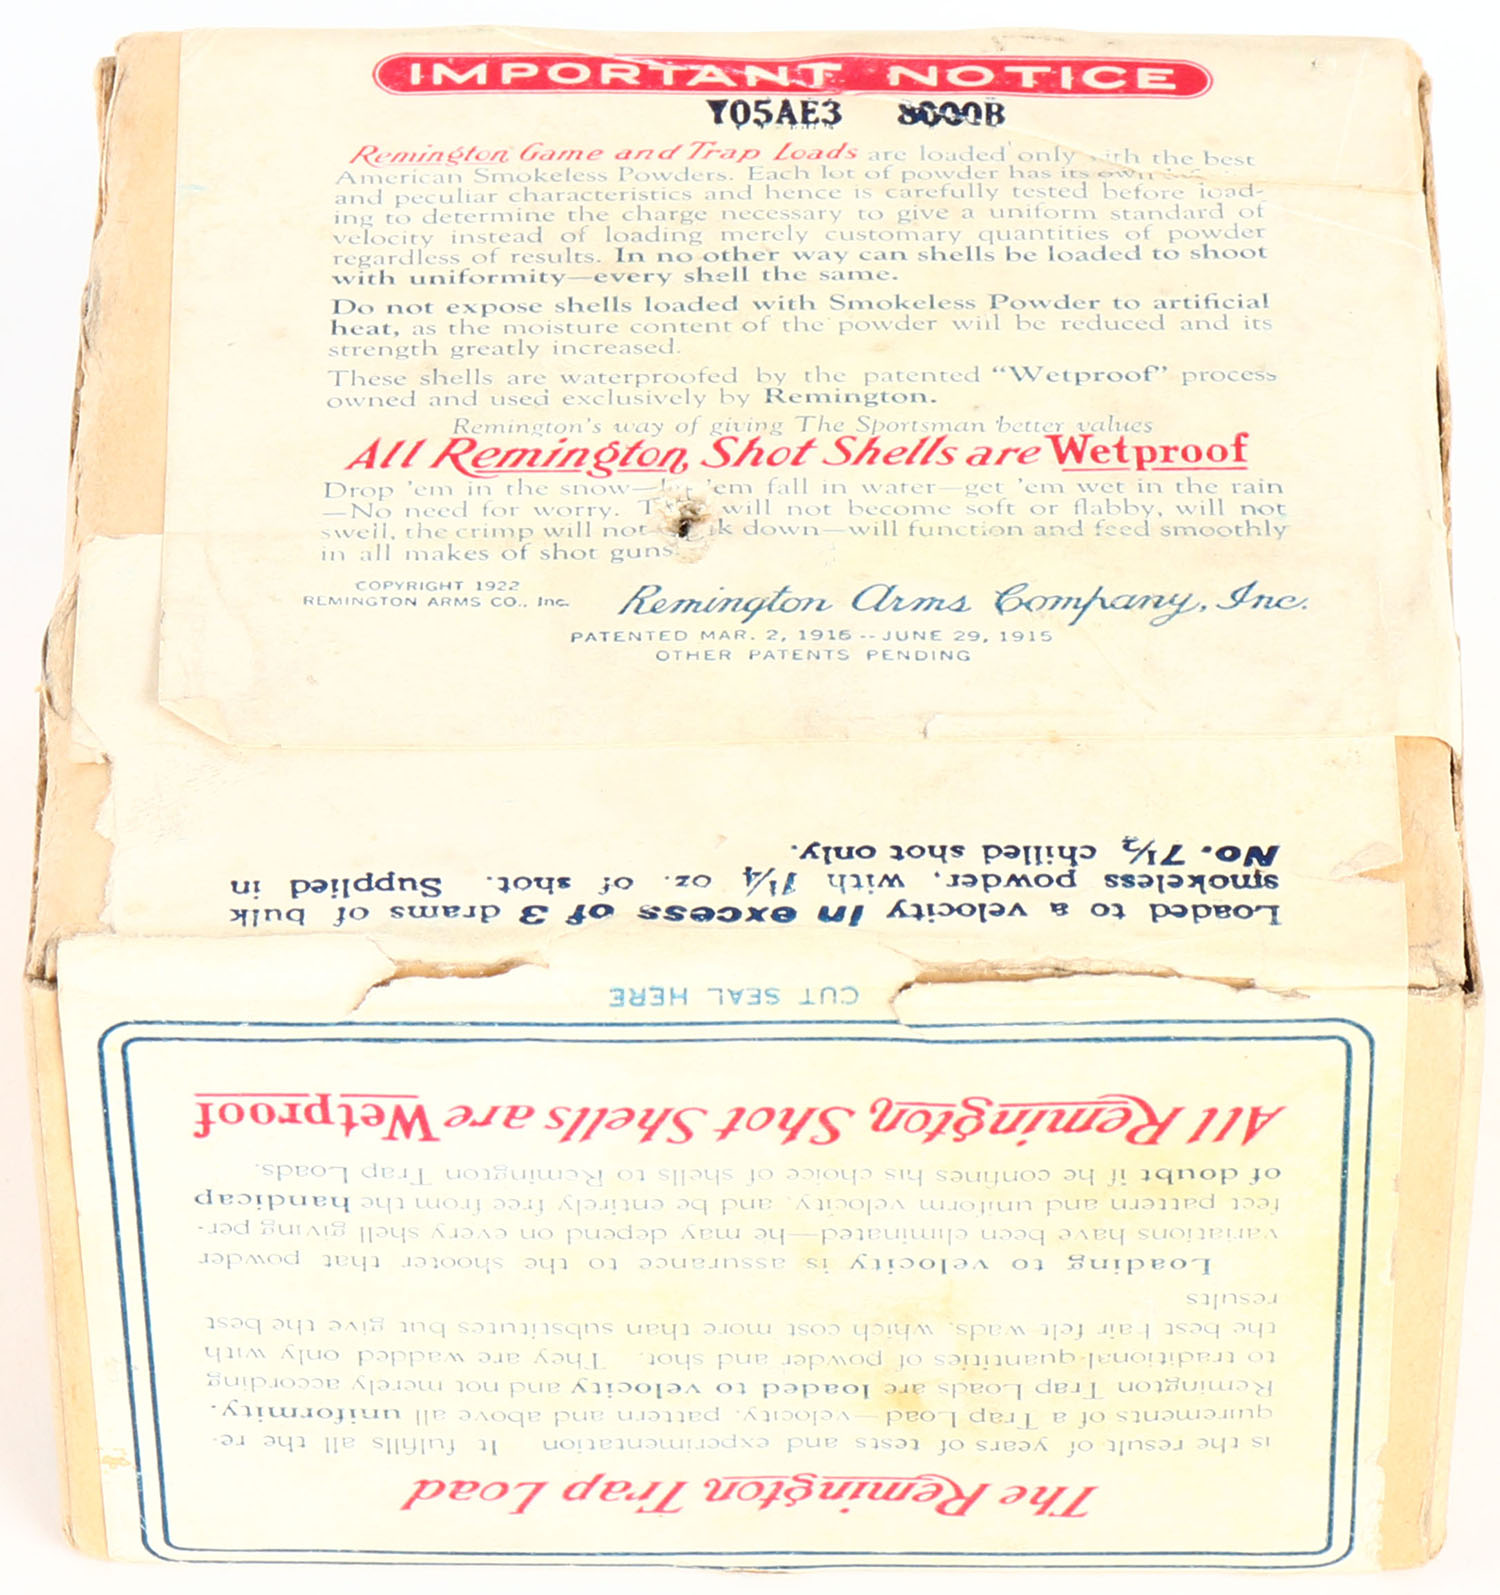 IMPORTANT NOTICE
Y05AE3 8000B
Remington Game and Trap Loads are loaded only with the best
American Smokeless Powders. Each lot of powder has its own
and peculiar characteristics and hence is carefully tested before load-
ing to determine the charge necessary to give a uniform standard of
velocity instead of loading merely customary quantities of powder
regardless of results. In no other way can shells be loaded to shoot
with uniformity—every shell the same.
Do not expose shells loaded with Smokeless Powder to artificial
heat, as the moisture content of the powder will be reduced and its
strength greatly increased.
These shells are waterproofed by the patented "Wetproof" process
owned and used exclusively by Remington.
Remington's way of giving The Sportsman better values
All Remington Shot Shells are Wetproof
Drop 'em in the snow—let 'em fall in water—get 'em wet in the rain
—No need for worry. will not become soft or flabby, will not
swell, the crimp will not down—will function and feed smoothly
in all makes of shot guns.
COPYRIGHT 1922
REMINGTON ARMS CO., Inc.
Remington Arms Company, Inc.
PATENTED MAR. 2, 1915 -- JUNE 29, 1915
OTHER PATENTS PENDING
Loaded to a velocity in excess of 3 drams of bulk
smokeless powder, with 1¼ oz. of shot. Supplied in
No. 7½ chilled shot only.
CUT SEAL HERE
The Remington Trap Load
is the result of years of tests and experimentation It fulfills all the re-
quirements of a Trap Load—velocity, pattern and above all uniformity.
Remington Trap Loads are loaded to velocity and not merely according
to traditional quantities of powder and shot. They are wadded only with
the best hair felt wads, which cost more than substitutes but give the best
results
Loading to velocity is assurance to the shooter that powder
variations have been eliminated—he may depend on every shell giving per-
fect pattern and uniform velocity, and be entirely free from the handicap
of doubt if he confines his choice of shells to Remington Trap Loads.
All Remington Shot Shells are Wetproof